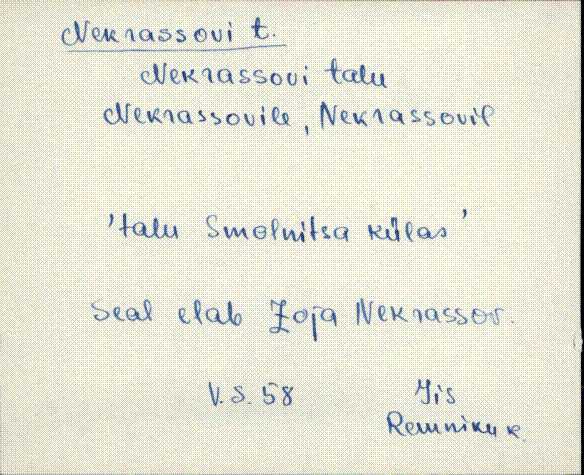 Nekrassovi t.
Nekrassovi talu
Nekrassovile, Nekrassovil
'talu Smolnitsa külas'
Seal elab Zoja Nekrassov.
V.S. 58 Iis
Remniku k.